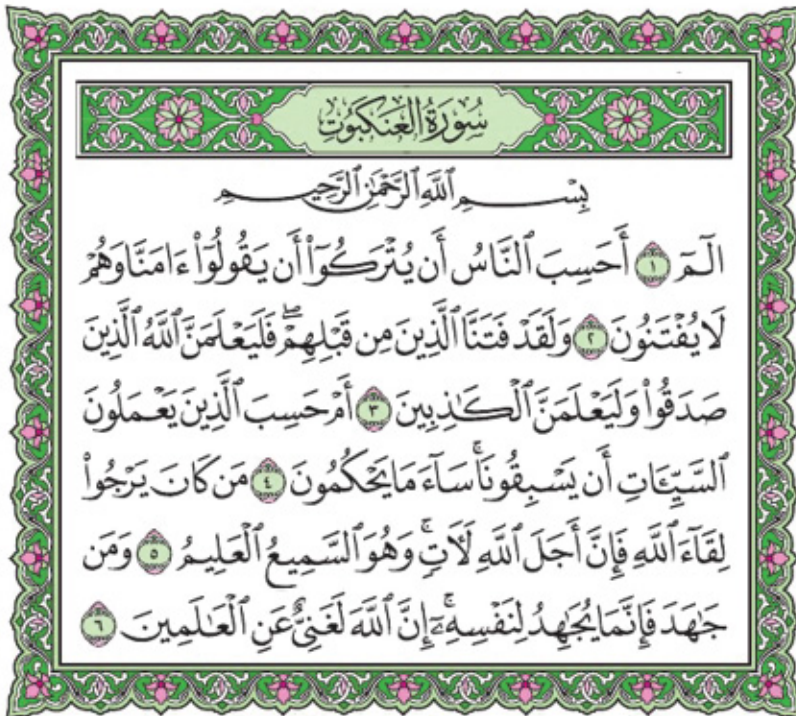 سُورَةُ العَنكَبُوتِ
بِسْمِ ٱللَّهِ ٱلرَّحْمَٰنِ ٱلرَّحِيمِ
الٓمٓ ١ أَحَسِبَ ٱلنَّاسُ أَن يُتْرَكُوٓا۟ أَن يَقُولُوٓا۟ ءَامَنَّا وَهُمْ
لَا يُفْتَنُونَ ٢ وَلَقَدْ فَتَنَّا ٱلَّذِينَ مِن قَبْلِهِمْ ۖ فَلَيَعْلَمَنَّ ٱللَّهُ ٱلَّذِينَ
صَدَقُوا۟ وَلَيَعْلَمَنَّ ٱلْكَٰذِبِينَ ٣ أَمْ حَسِبَ ٱلَّذِينَ يَعْمَلُونَ
ٱلسَّيِّـَٔاتِ أَن يَسْبِقُونَا ۚ سَآءَ مَا يَحْكُمُونَ ٤ مَن كَانَ يَرْجُوا۟
لِقَآءَ ٱللَّهِ فَإِنَّ أَجَلَ ٱللَّهِ لَـَٔاتٍ ۚ وَهُوَ ٱلسَّمِيعُ ٱلْعَلِيمُ ٥ وَمَن
جَٰهَدَ فَإِنَّمَا يُجَٰهِدُ لِنَفْسِهِۦٓ ۚ إِنَّ ٱللَّهَ لَغَنِىٌّ عَنِ ٱلْعَٰلَمِينَ ٦